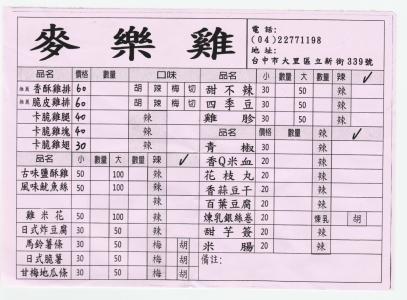 麥樂雞
電話:
(04)22771198
地址:
台中市大里區立新街339號
品名 價格 數量 口味
推薦 香酥雞排 60 胡 辣 梅 切
推薦 脆皮雞排 60 胡 辣 梅 切
卡脆雞腿 40 辣
卡脆雞塊 40 辣
卡脆雞翅 30 辣
品名 小 數量 大 數量 辣 ✓
古味鹽酥雞 50 100 辣
風味魷魚絲 50 100 辣
雞米花 50 100 辣
日式炸豆腐 30 50 辣
馬鈴薯條 30 50 梅 胡
日式脆薯 30 50 梅 胡
甘梅地瓜條 30 50 梅 胡
品名 小 數量 大 數量 辣 ✓
甜不辣 30 50 辣
四季豆 30 50 辣
雞胗 30 50 辣
品名 價格 數量 辣 ✓
青椒 30 辣
香Q米血 20 辣
花枝丸 20 辣
香蒜豆干 20 辣
百葉豆腐 20 辣
煉乳銀絲卷 20 煉乳 胡
甜芋簽 20 辣
米腸 20 辣
備註: